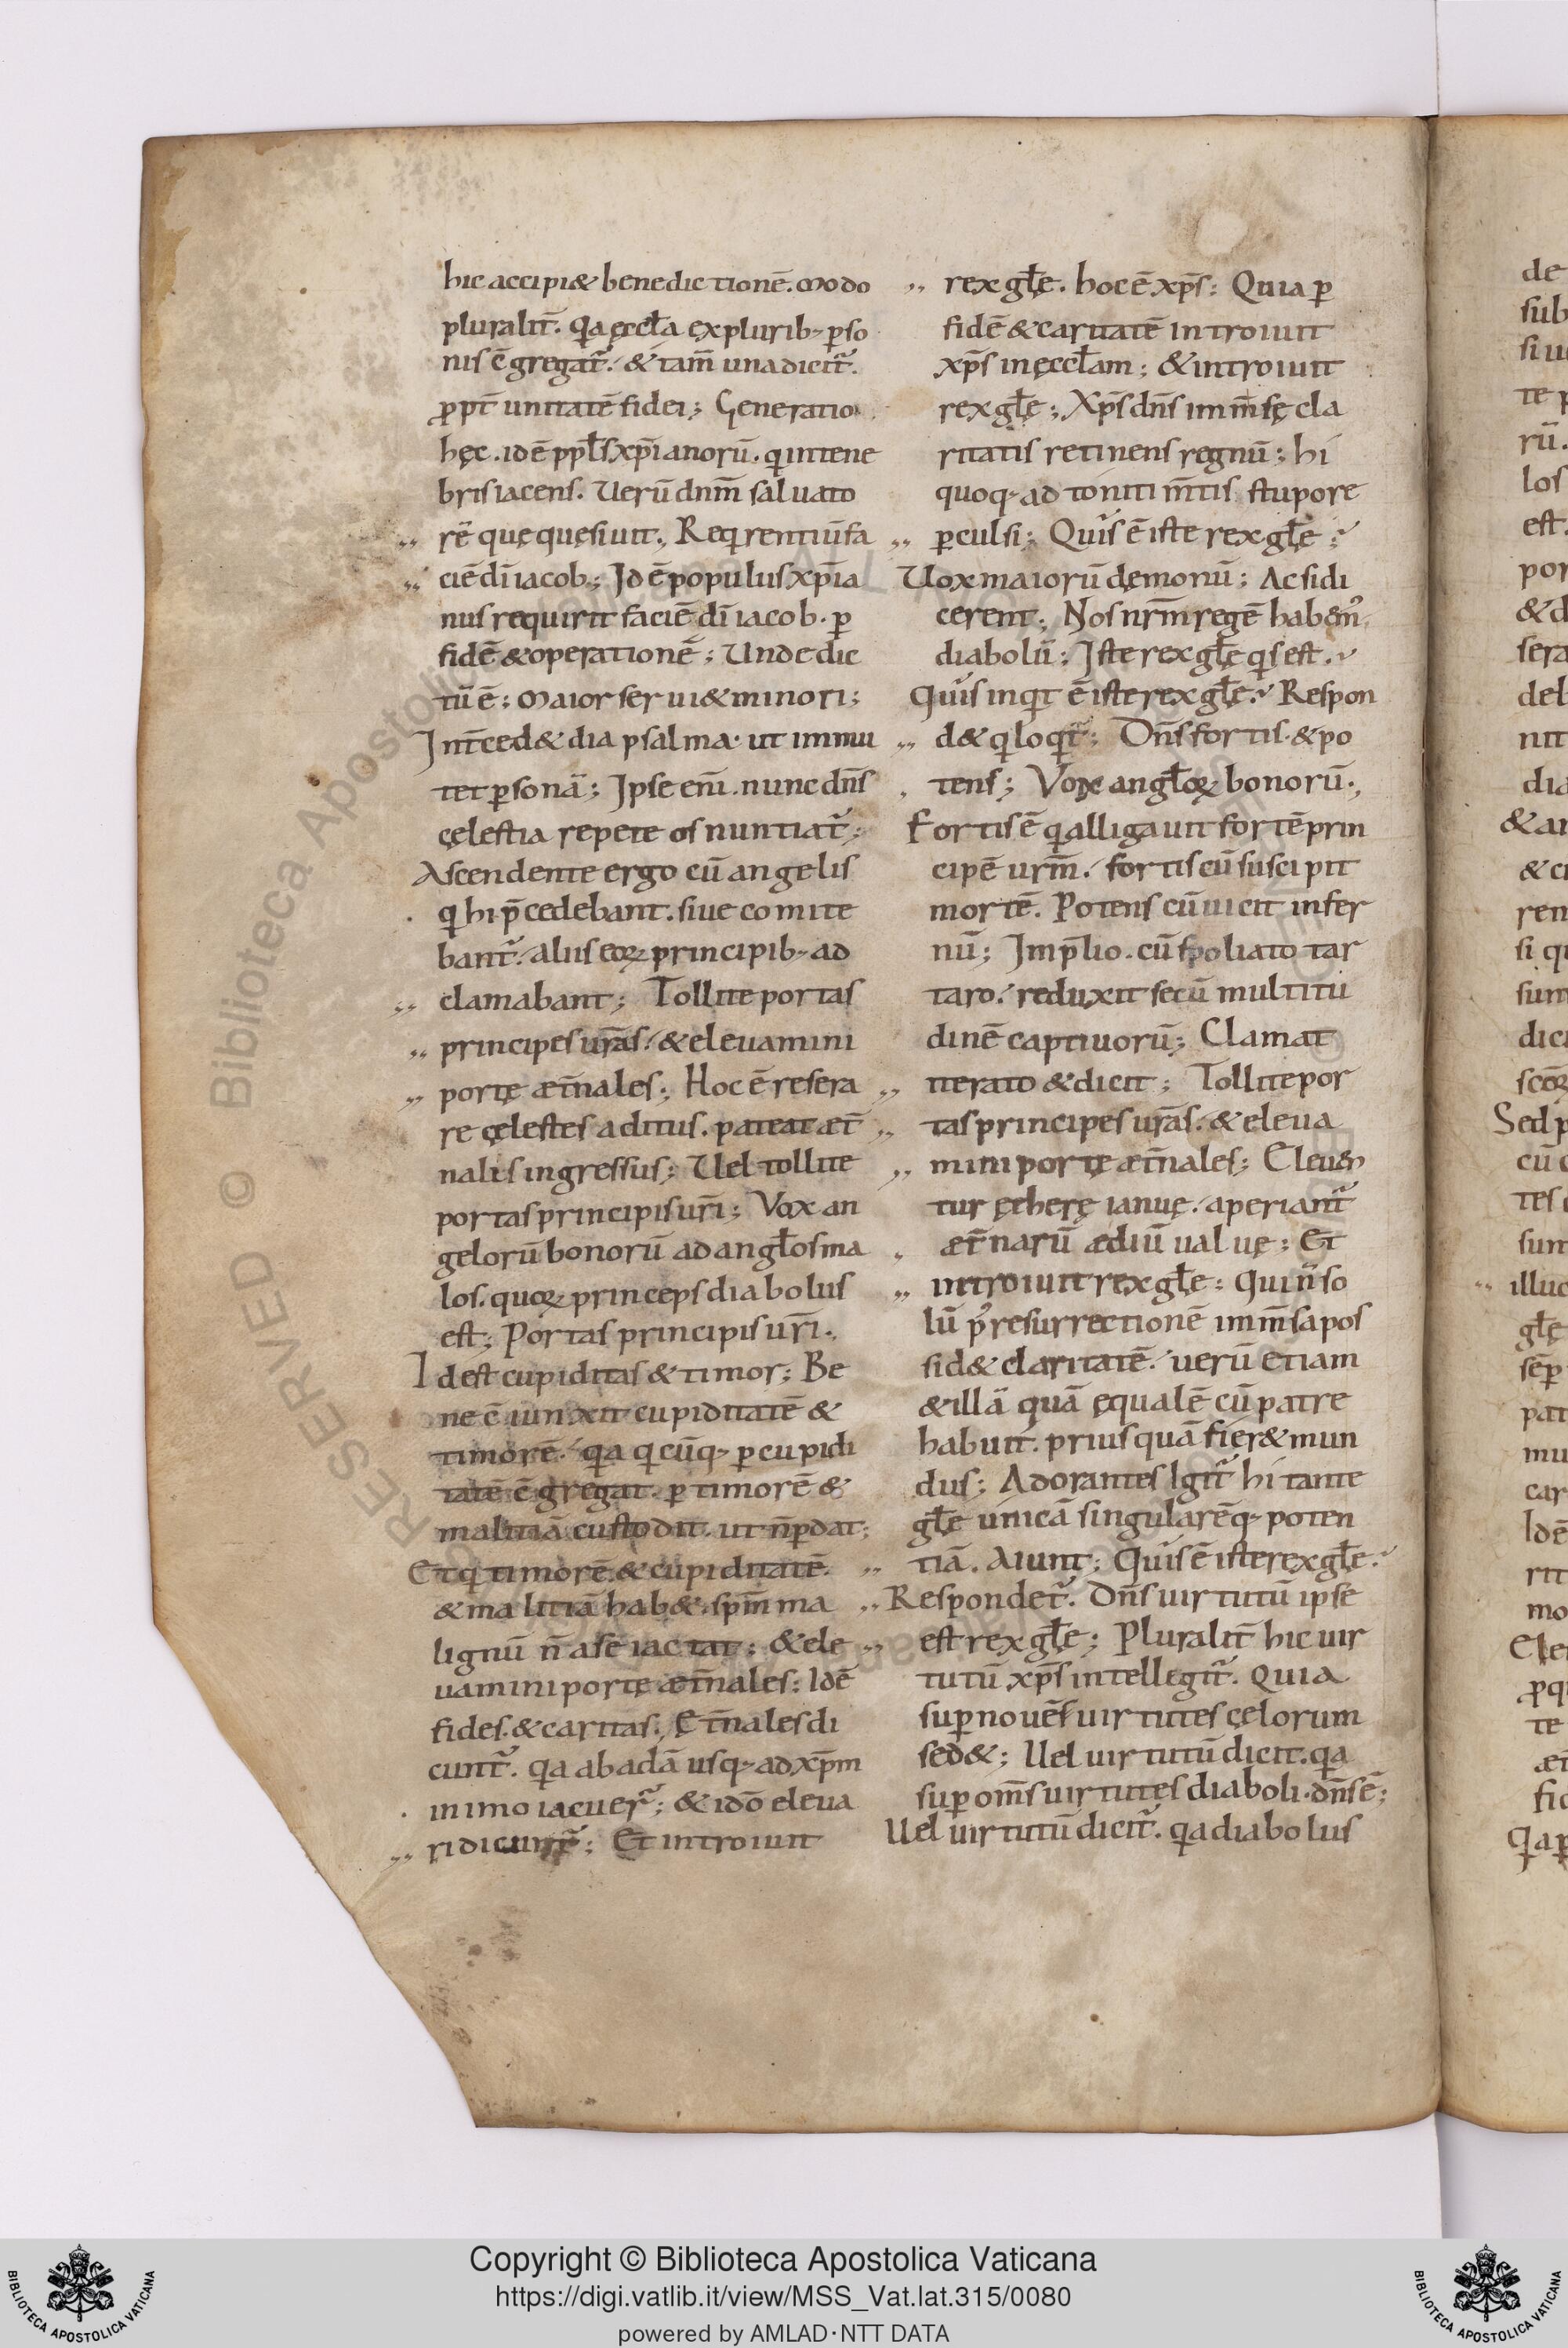 hic accipi& benedictionē. modo
pluralit̄. q̇a ęccła ex plurib; p̱so
nis c̄gregat̃. & tam̄ una dicit̃.
ꝓpt̄ unitatē fidei; Generatio
hęc. id ē pp̄łs xp̄ianorū. qui in tene
bris iacens. Uerū dnm̄ saluato
rē quę quęsiuit; Req̇rentiū fa
ciē dī iacob; Id ē populus xp̄ia
nus requirit faciē dī iacob. ꝑ
fidē & operationē; Unde dic
tū ē; Maior serui& minori;
Int̄ced& dia psalma. ut immu
tet ꝑsonā; Ipse eni̅. nunc dn̄s
cęlestia repeteros nuntiat̃;
Ascendente ergo cū angelis
q̇ hi p̄cedebant. siue comite
bant̃. aliis eoꝝ principib; ad
clamabant; Tollite portas
principes ur̄as. & eleuamini
portę æt̄nales; Hoc ē resera
re cęlestes aditus. pateat æt̄
nalis ingressus; Uel tollite
portas principis ur̄i; Vox an
gelorū bonorū ad angłos ma
los. quoꝝ princeps diabolus
est; Portas principis ur̄i.
Id est cupiditas & timor; Be
ne c̄iunxit cupiditatē &
timorē. q̇a q̇cūq; ꝑ cupidi
tatē c̄gregat. ꝑ timorē &
malitiā custodit. ut n̄ ꝑdat;
Et q̇ timorē. & cupiditatē.
& malitiā hab&. spm̄ ma
lignū n̄ a se iactat; & ele
uamini portę æt̄nales; Idē
fides. & caritas. Ęt̄nales di
cunt̃. q̇a ab adā usq; ad xp̄m
in imo iacuer̃; & idō eleua
ri dicunt̃; Et introiuit
rex głę. hoc ē xp̄s; Quia ꝑ
fidē & caritatē introiuit
xp̄s in ęccłam; & introiuit
rex głę; Xp̄s dn̄s imm̄sę cla
ritatis retinens regnū; hi
quoq; ad toniti m̄tis stupore
ꝑculsi; Quis ē iste rex głę?
Uox maiorū dęmonū; Ac si di
cerent; Nos nr̄m regē habem;
diabolū; Iste rex głę q̇s est?
Quis inq̇t ē iste rex głę? Respon
d& q̇ loq̇t̃; Dn̄s fortis. & po
tens; Vox angłoꝝ bonorū.
Fortis ē q̇ alligauit fortē prin
cipē ur̄m. fortis cū suscipit
mortē. Potens cū uicit infer
nū; Imp̄lio. cū spoliato tar
taro. reduxit secū multitu
dinē captiuorū; Clamat
iterato & dicit; Tollite por
tas principes ur̄as. & eleua
mini portę æt̄nales; Eleuen
tur ętherę ianuę. aperiant̃
æt̄narū ædiū ualuę; Et
introiuit rex głę; Qui n̄ so
lū p; resurrectionē imm̄sa pos
sid& claritatē. uerū etiam
& illā quā ęqualē cū patre
habuit. prius quā fier& mun
dus; Adorantes Igit̃ hi tante
głę unicā singularēq; poten
tiā. Aiunt; Quis ē iste rex głę?
Respondet̃. Dn̄s uirtutū ipse
est rex głę; Pluralit̄ hic uir
tutū xp̄s intellegit̃. Quia
suꝑ nouē uirtutes cęlorum
sed&; Uel uirtutū dicit. q̇a
suꝑ om̄s uirtutes diaboli. dn̄s ē;
Uel uirtutū dicit̃. q̇a diabolus
Copyright © Biblioteca Apostolica Vaticana
https://digi.vatlib.it/view/MSS_Vat.lat.315/0080
powered by AMLAD·NTT DATA
BIBLIOTECA APOSTOLICA VATICANA
BIBLIOTECA APOSTOLICA VATICANA